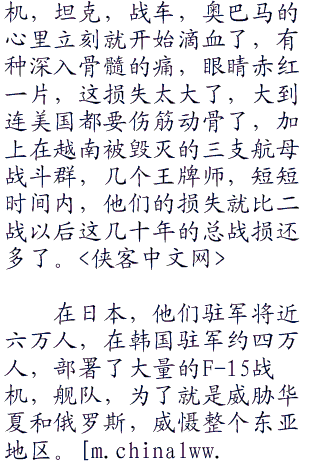 机，坦克，战车，奥巴马的
心里立刻就开始滴血了，有
种深入骨髓的痛，眼睛赤红
一片，这损失太大了，大到
连美国都要伤筋动骨了，加
上在越南被毁灭的三支航母
战斗群，几个王牌师，短短
时间内，他们的损失就比二
战以后这几十年的总战损还
多了。<侠客中文网>
在日本，他们驻军将近
六万人，在韩国驻军约四万
人，部署了大量的F-15战
机，舰队，为了就是威胁华
夏和俄罗斯，威慑整个东亚
地区。[m.china1ww.